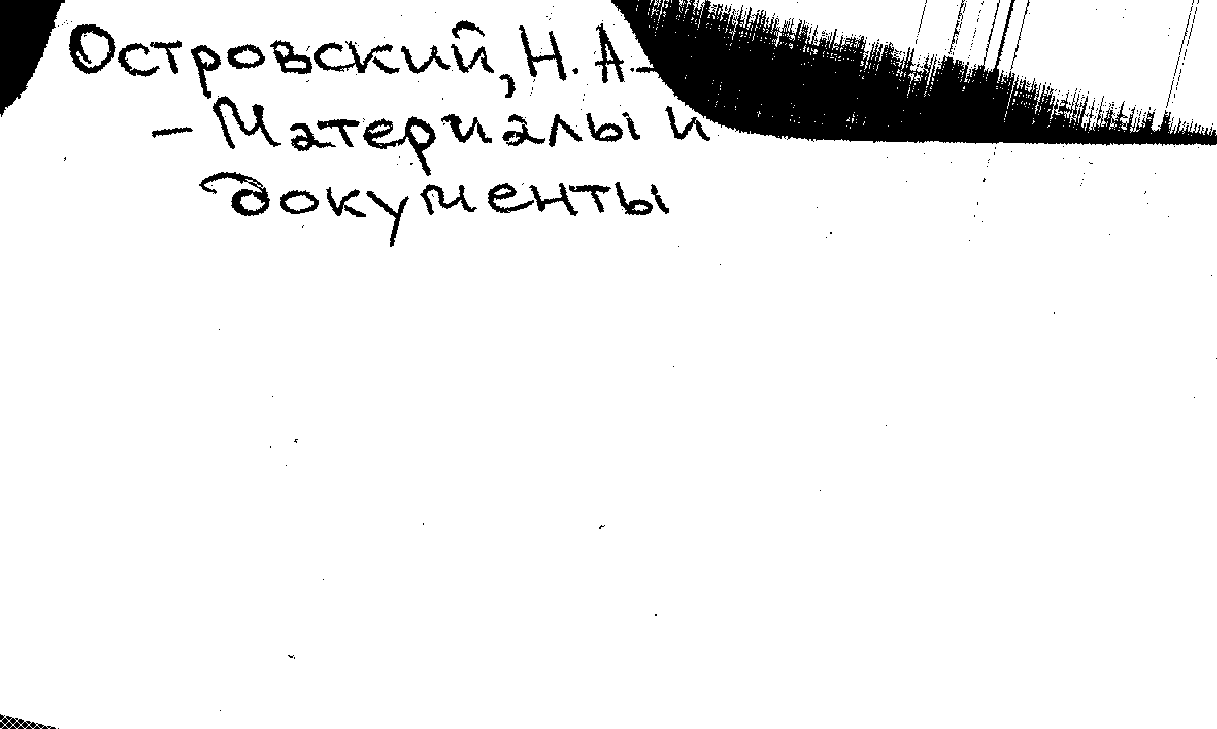 Островский, Н. А-
- Материалы и
документы